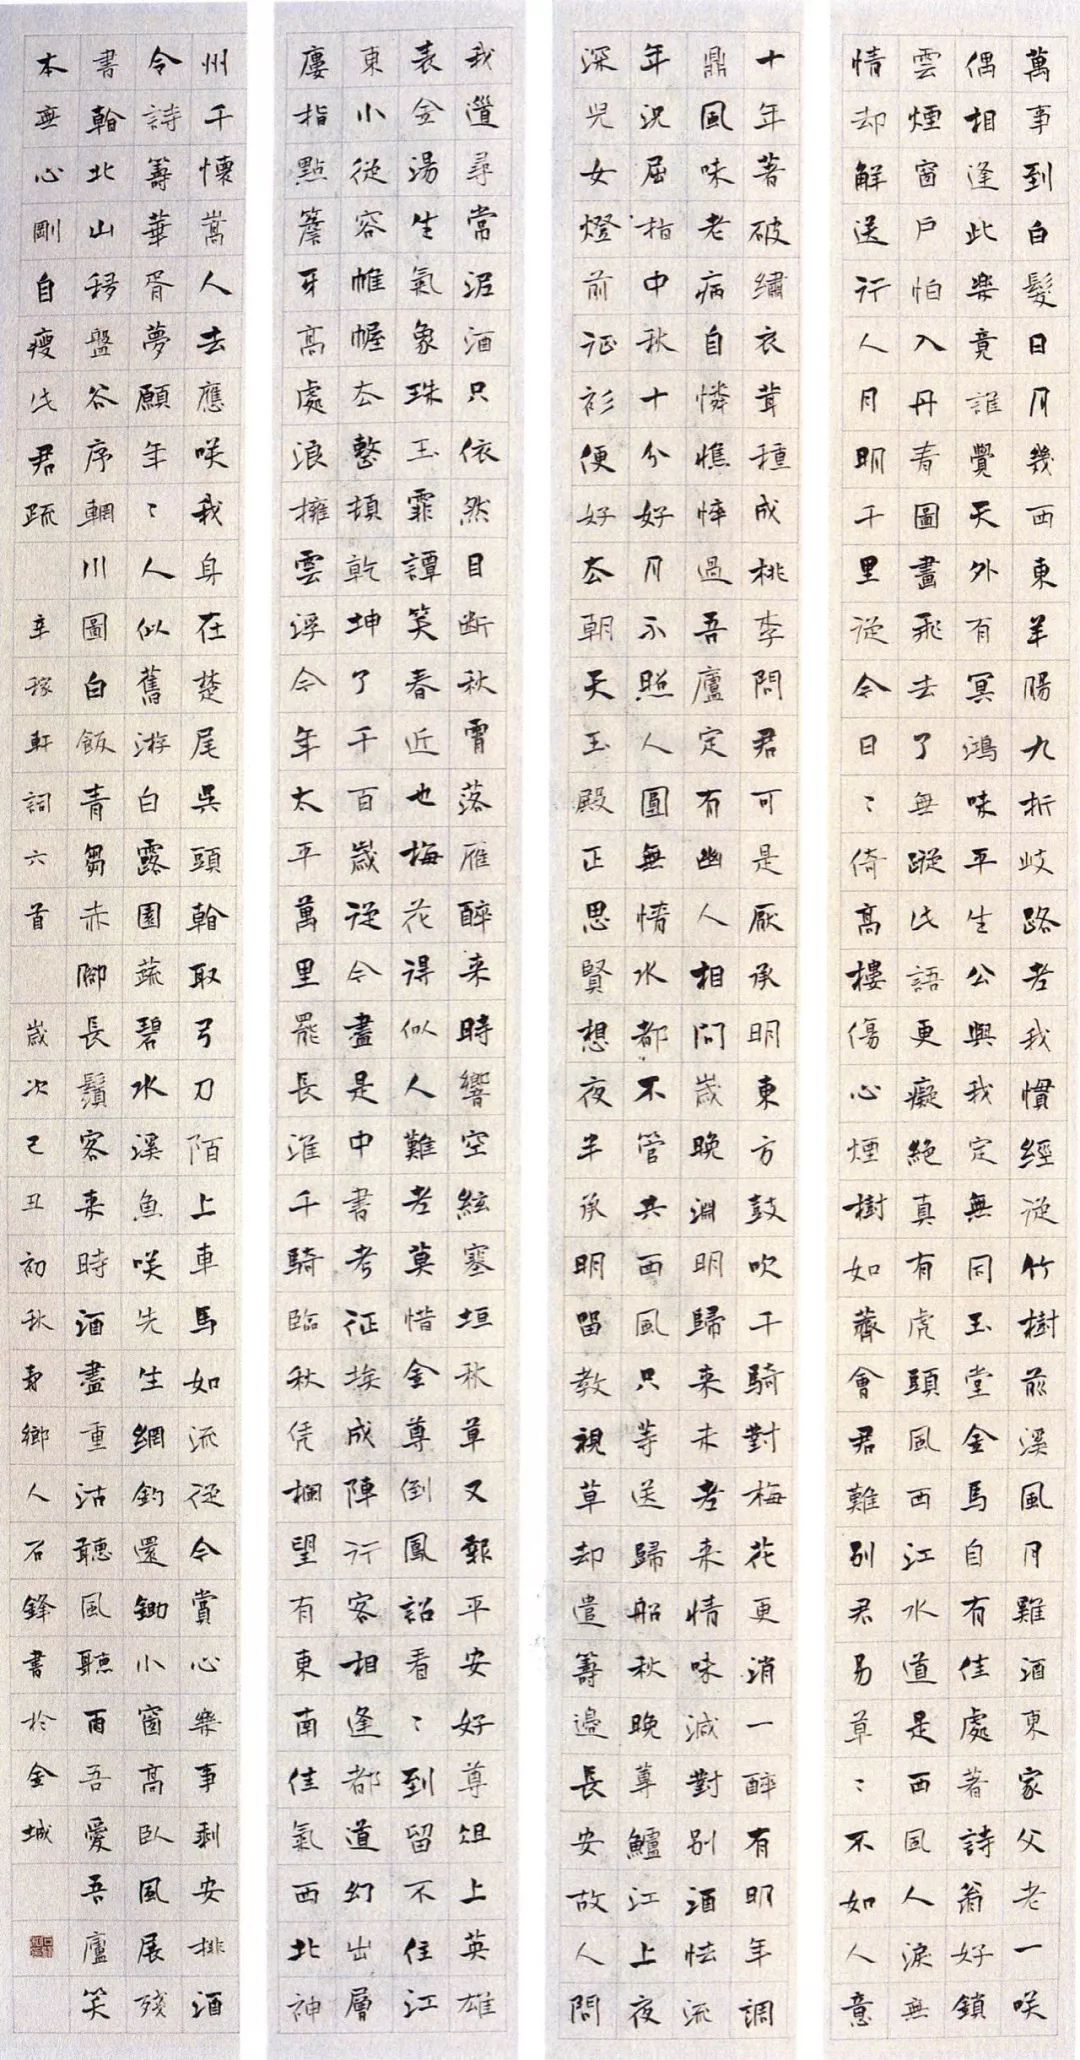 萬事到白髮日月幾西東羊腸九折岐路老我慣經從竹樹前溪風月雞酒東家父老一咲
偶相逢此樂竟誰覺天外有冥鴻味平生公與我定無同玉堂金馬自有佳處著詩翁好鎖
雲煙窗戶怕入丹青圖畫飛去了無蹤此語更癡絕真有虎頭風西江水道是西風人淚無
情却解送行人月明千里從今日〻倚高樓傷心煙樹如薺會君難別君易草〻不如人意
十年著破繡衣茸種成桃李問君可是厭承明東方鼓吹千騎對梅花更消一醉有明年調
鼎風味老病自憐憔悴過吾廬定有幽人相問歲晚淵明歸来未老来情味減對別酒怯流
年況屈指中秋十分好月不照人圓無情水都不管共西風只等送歸船秋晚蓴鱸江上夜
深兒女燈前征衫便好去朝天玉殿正思賢想夜半承明留教視草却遣籌邊長安故人問
我道尋常泥酒只依然目斷秋霄落雁醉来時響空絃塞垣秋草又報平安好尊俎上英雄
表金湯生氣象珠玉霏譚笑春近也梅花得似人難老莫惜金尊倒鳳詔看〻到留不住江
東小從容帷幄去整頓乾坤了千百歲從今盡是中書考征埃成陣行客相逢都道幻出層
廔指點簷牙高處浪擁雲浮今年太平萬里罷長淮千騎臨秋凭欄望有東南佳氣西北神
州千懷嵩人去應咲我身在楚尾吳頭翰取弓刀陌上車馬如流從今賞心樂事剩安排酒
令詩籌華胥夢願年〻人似舊游白露園蔬碧水溪魚咲先生網釣還鋤小窗高臥風展殘
書翰北山移盤谷序輞川圖白飯青芻赤腳長鬚客来時酒盡重沽聽風聽雨吾愛吾廬笑
本無心剛自瘦此君疏 辛稼軒詞六首 歲次己丑初秋鄉人石鋒書於金城